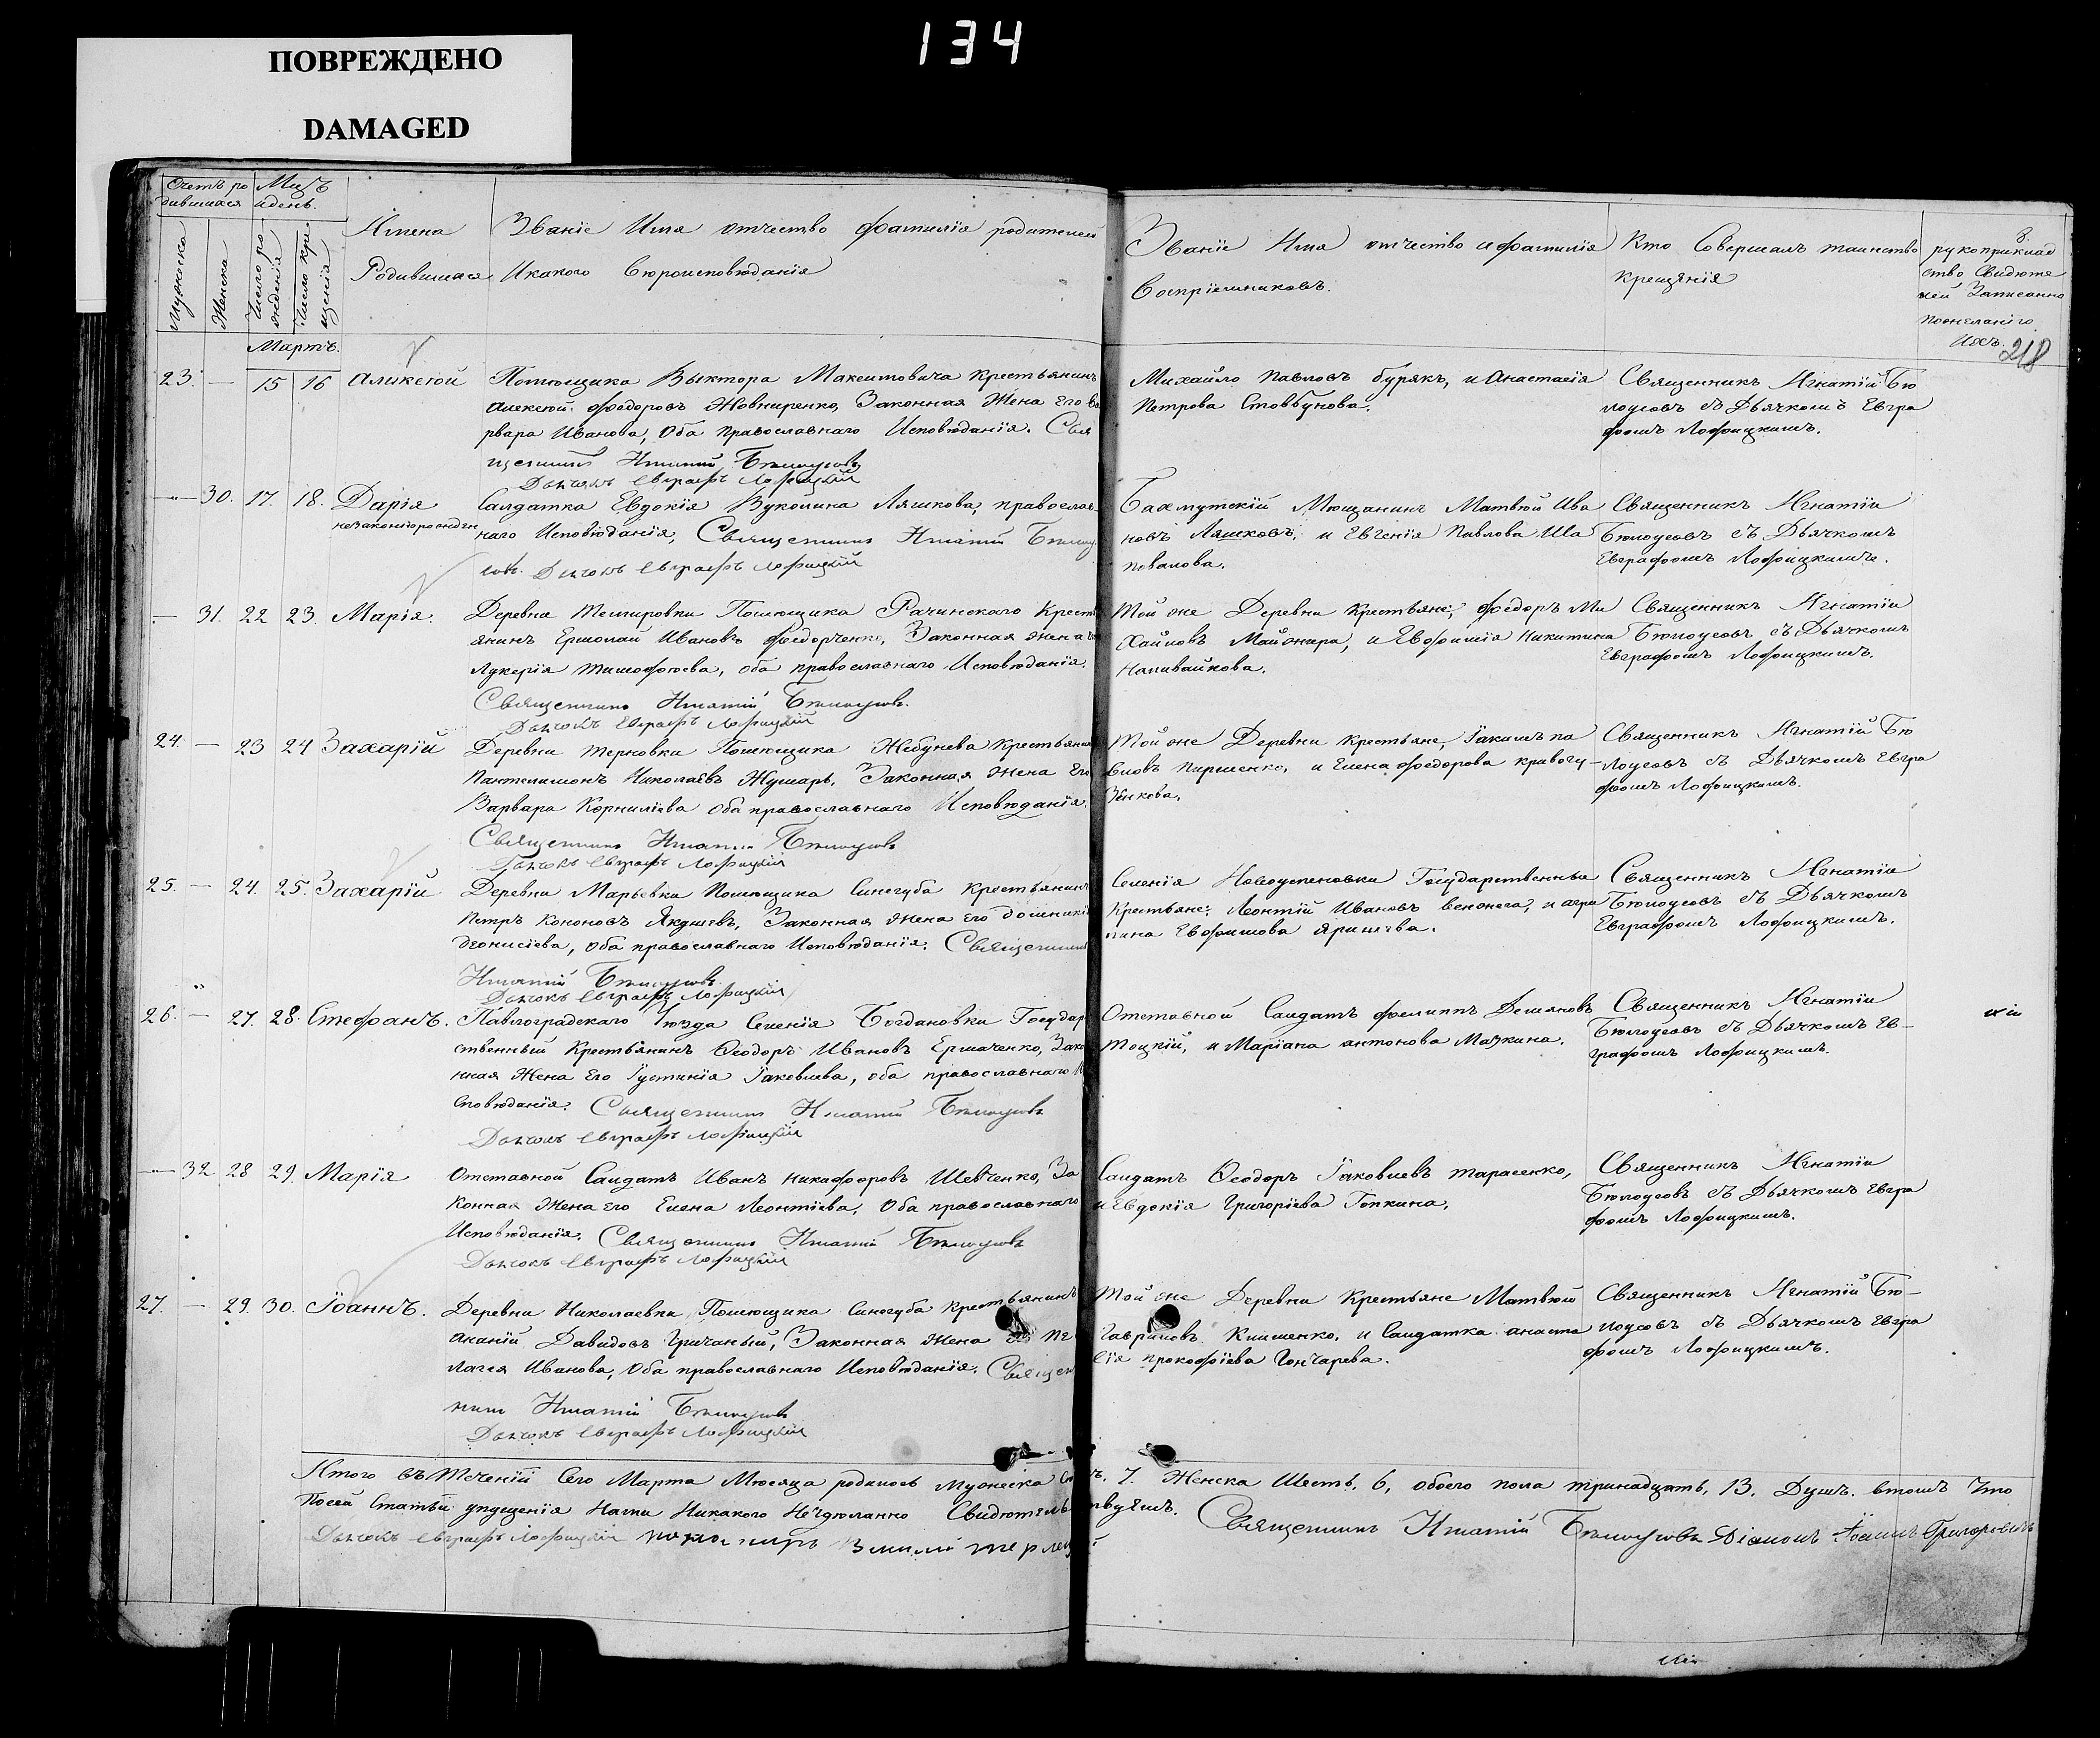 134
ПОВРЕЖДЕНО
DAMAGED
Счетъ ро
дившихся
Мцъ
идень.
Мужеска
Женска
Число ро
жденія
Число кре
щенія
Имена
Родившихся
Званіе Имя отчество фамилія родителей
Икакого вѣроисповѣданія
Званіе Имя отчество ифамилія
Воспріемниковъ.
Кто Совершалъ таинство
крещенія
8.
рукоприклад
ство Свидѣте
лей Записанно
пожеланіго
Ихъ.
218
Мартъ.
23. — 15 16 Аликсѣй
Помѣщика Выктора Макситовича крестьянинъ
Алексѣй Федоровъ Жовниренко, Законная Жена Его Ва
рвара Иванова, Оба православнаго Исповѣданія. Свя
щенникъ Игнатій Бѣлоусовъ
Дьячокъ Евграфъ Лофицкій
Михайло Павловъ бурякъ, и Анастасія
Петрова Стовбунова.
Священникъ Игнатій Бѣ
лоусовъ съ Дьячкомъ Евгра
фомъ Лофицкимъ.
— 30. 17. 18. Дарія
незаконнорожден
Салдатка Евдокія Вуколина Ляшкова, православ
наго Исповѣданія, Священникъ Игнатій Бѣлоу
совъ. Дьячокъ Евграфъ Лофицкій
Бахмутскій Мѣщанинъ Матвѣй Ива
новъ Ляшковъ, и Евгенія Павлова Ша
повалова.
Священникъ Игнатіи
Бѣлоусовъ съ Дьячкомъ
Евграфомъ Лофицкимъ.
— 31. 22 23. Марія.
Деревни Темировки Помѣщика Рачинскаго Крест
янинъ Ермолай Ивановъ Федорченко, Законная жена
Лукерія Тимофѣева, оба православнаго Исповѣданія.
Священникъ Игнатій Бѣлоусовъ.
Дьячокъ Евграфъ Лофицкій
Той же Деревни крестьяне, Федоръ Ми
хайловъ Майжара, и Евфимія Никитина
Наливайкова.
Священникъ Игнатіи
Бѣлоусовъ съ Дьячкомъ
Евграфомъ Лофицкимъ.
24. — 23 24 Захарій
Деревни Терновки Помѣщика Жебунева Крестьянин
Пантелимонъ Николаевъ Жушаръ, Законная Жена Его
Варвара Корниліева оба православнаго Исповѣданія.
Священникъ Игнатій Бѣлоусовъ
Дьячокъ Евграфъ Лофицкій
Той же Деревни крестьяне, Іакимъ Па
вловъ Пирченко, и Елена Федорова кривогу-
Зенкова.
Священникъ Игнатій Бѣ
лоусовъ съ Дьячкомъ Евгра
фомъ Лофицкимъ.
25. — 24. 25. Захарій
Деревни Марьевки Помѣщика Синегуба крестьянинъ
Петръ Кононовъ Якушевъ, Законная Жена Его Домники
Деонисіева, Оба православнаго Исповѣданія. Священникъ
Игнатій Бѣлоусовъ
Дьячокъ Евграфъ Лофицкій
Селенія Новоуспеновки Государственные
Крестьяне, Леонтій Ивановъ и Агри
пина Евфимова
Священникъ Игнатіи
Бѣлоусовъ съ Дьячкомъ
Евграфомъ Лофицкимъ.
26. — 27. 28. Стефанъ.
Павлоградскаго Уѣзда Селенія Богдановки Государ
ственный Крестьянинъ Ѳеодоръ Ивановъ Ермаченко, Зако
нная Жена Его Іустинія Іаковлева, оба православнаго И
сповѣданія. Священникъ Игнатій Бѣлоусовъ
Дьячокъ Евграфъ Лофицкій
Отставной Салдатъ Филиппъ Демяновъ
Тоцкій, и Маріана Антонова Мазкина.
Священникъ Игнатіи
Бѣлоусовъ съ Дьячкомъ Ев-
графомъ Лофицкимъ.
— 32 28 29. Марія
Отставной Салдатъ Иванъ Никифоровъ Шевченко, За
конная Жена его Елена Леонтіева, Оба православнаго
Исповѣданія. Священникъ Игнатій Бѣлоусовъ
Дьячокъ Евграфъ Лофицкій
Салдатъ Ѳеодоръ Іаковлевъ Тарасенко,
и Евдокія Григоріева Гопкина.
Священникъ Игнатіи
Бѣлоусовъ съ Дьячкомъ Евгра
фомъ Лофицкимъ.
27. — 29. 30. Іоаннъ.
Деревни Николаевки Помѣщика Синегуба крестьянинъ
Ананій Давидовъ Гричаный, Законная Жена Его Пе
лагея Иванова, Оба православнаго Исповѣданія. Священ
никъ Игнатій Бѣлоусовъ
Дьячокъ Евграфъ Лофицкій
Той же Деревни Крестьяне Матвѣй
Гавриловъ Клименко, и Салдатка Анаста
сія Прокофіева Гончарева.
Священникъ Игнатій Бѣ-
лоусовъ съ Дьячкомъ Евгра
фомъ Лофицкимъ.
Итого въ теченіи Сего Марта Мѣсяца родилось Мужеска 7. Женска Шесть, 6, обоего пола тринадцать, 13. Душъ. втомъ Что
Посей Статьи упущенія Нами Никакого Неучѣланно Свидѣтельствуемъ. Священникъ Игнатій Бѣлоусовъ Діаконъ Іоаннъ Григоровичъ
Дьячокъ Евграфъ Лофицкій